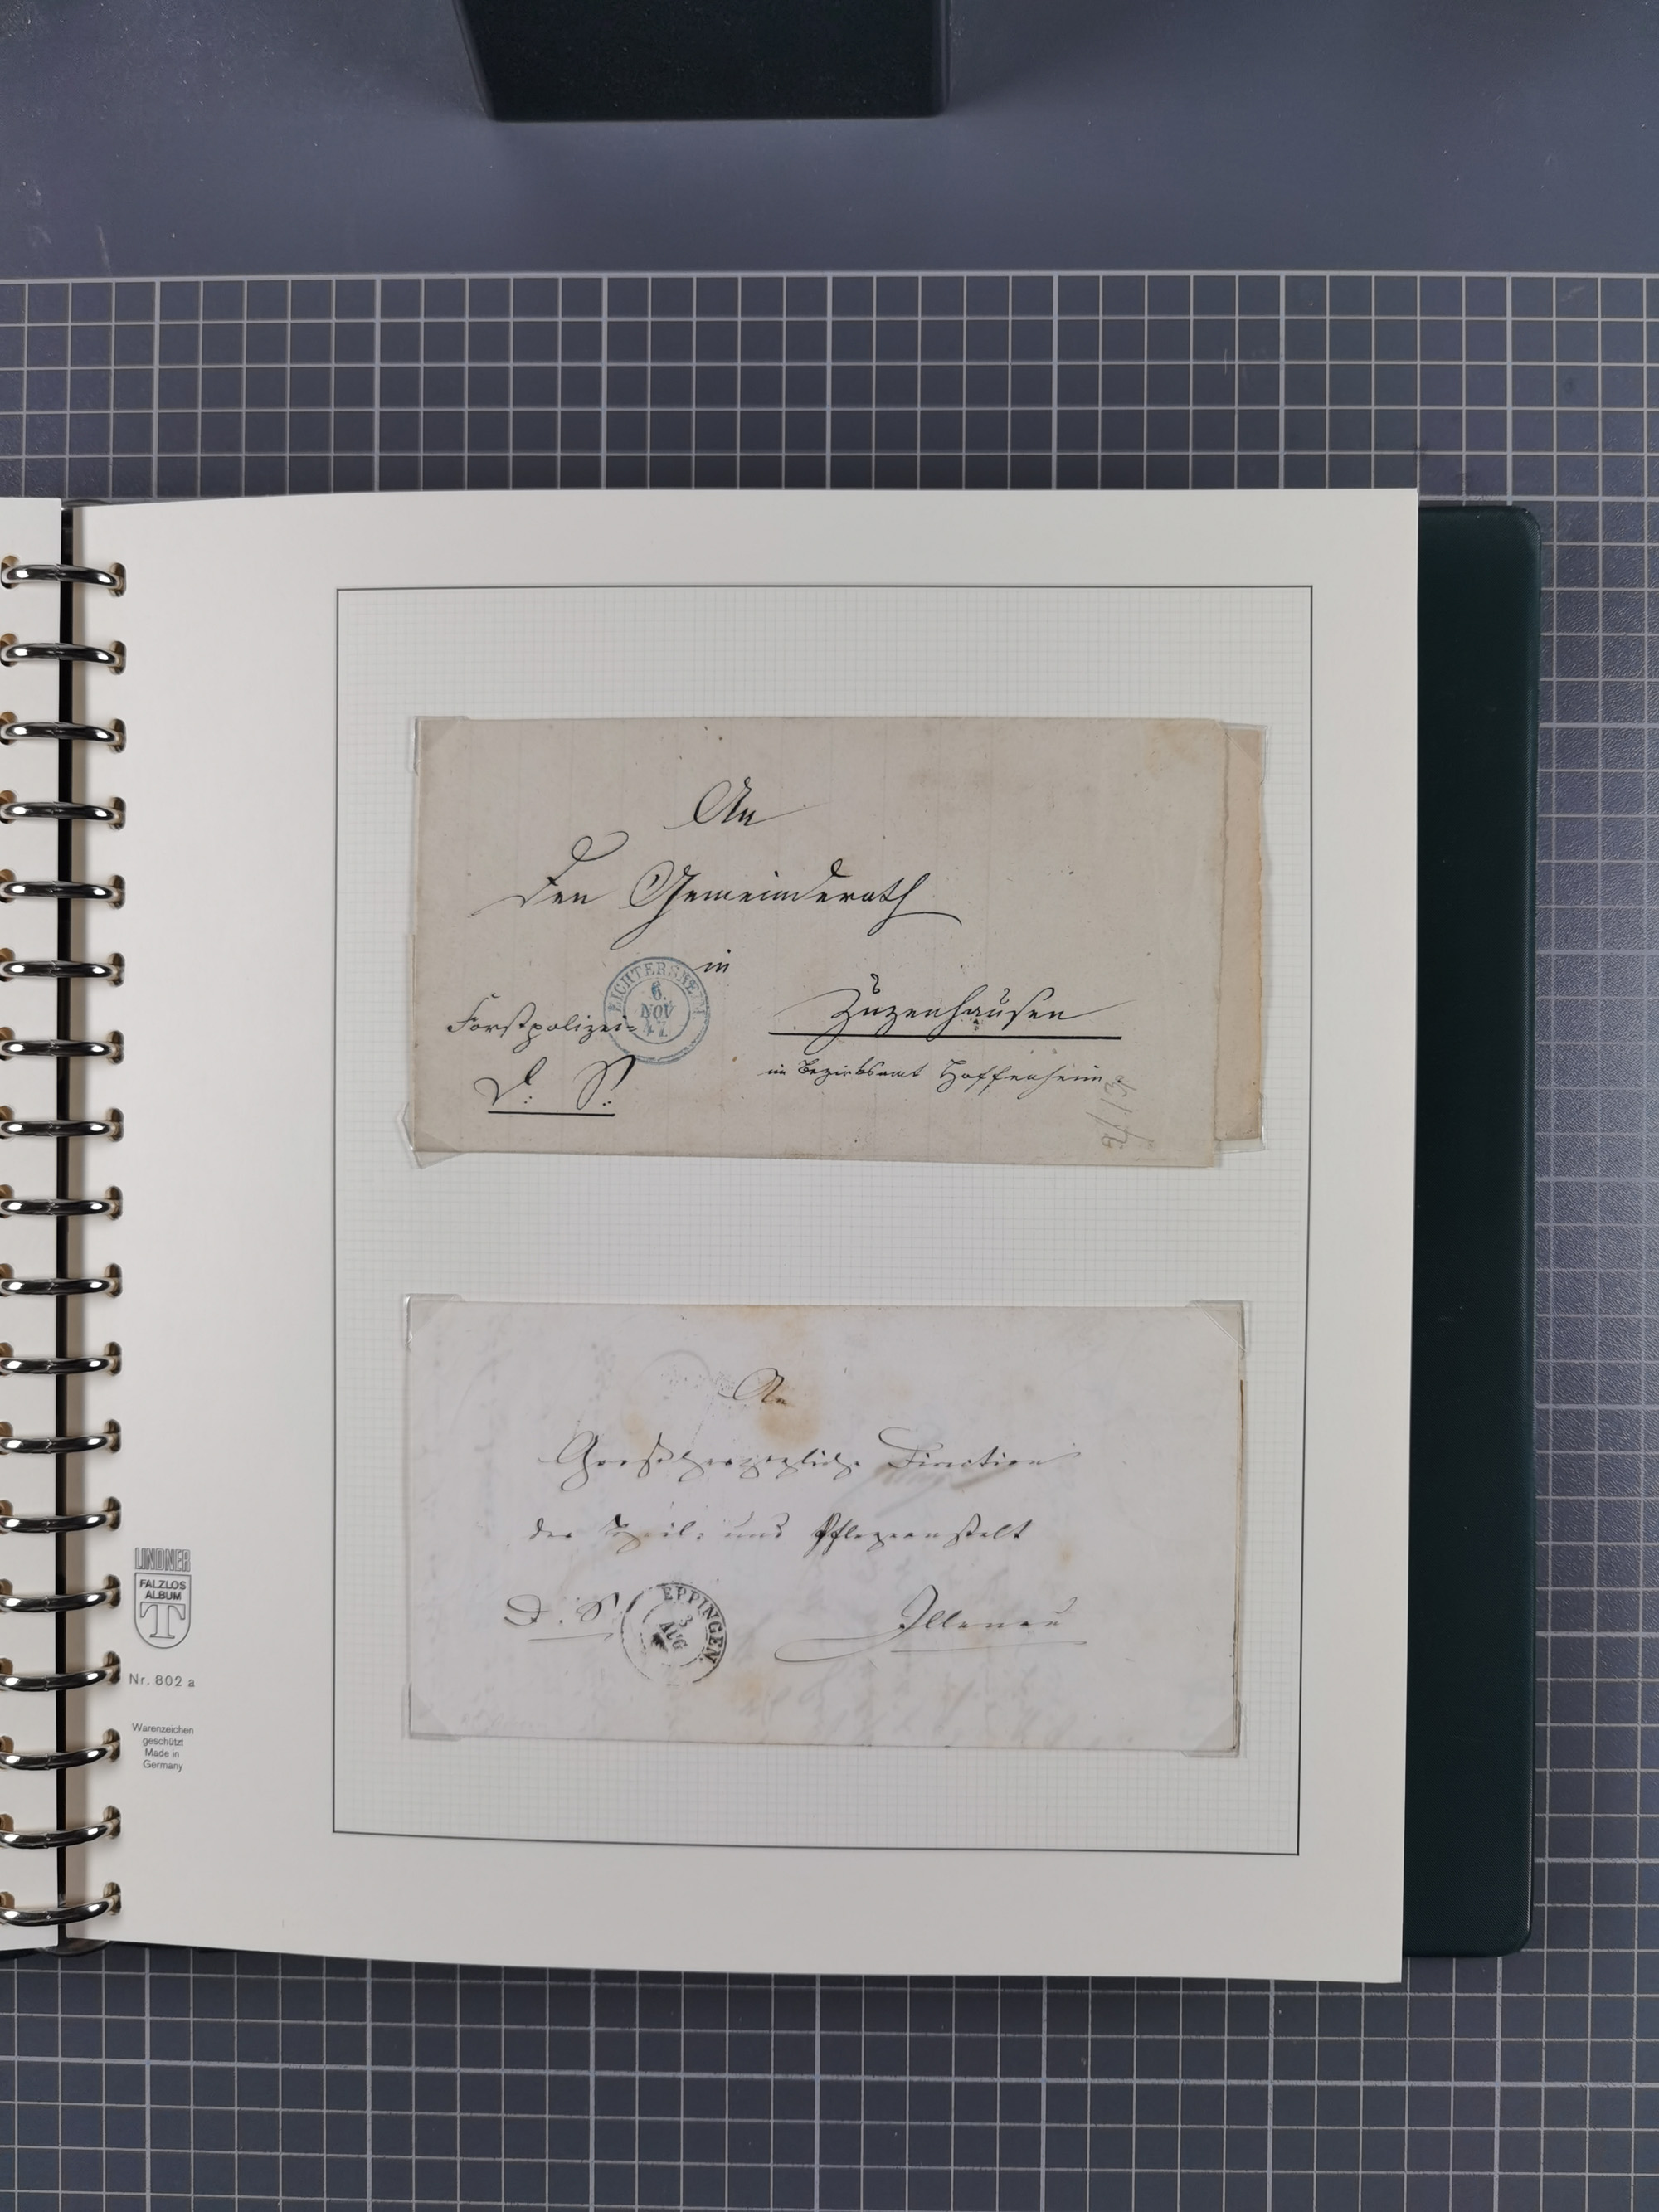 An
Den Gemeinderath
in
Zuzenhausen
Forstpolizei=
D: S:
im Bezirksamt Hoffenheim
6.
NOV
47
An
Großherzogliche Direction
der Heil= und Pflegeanstalt
D. S.
Illenau
EPPINGEN.
3
AUG
LINDNER
FALZLOS
ALBUM
T
Nr. 802 a
Warenzeichen
geschützt
Made in
Germany